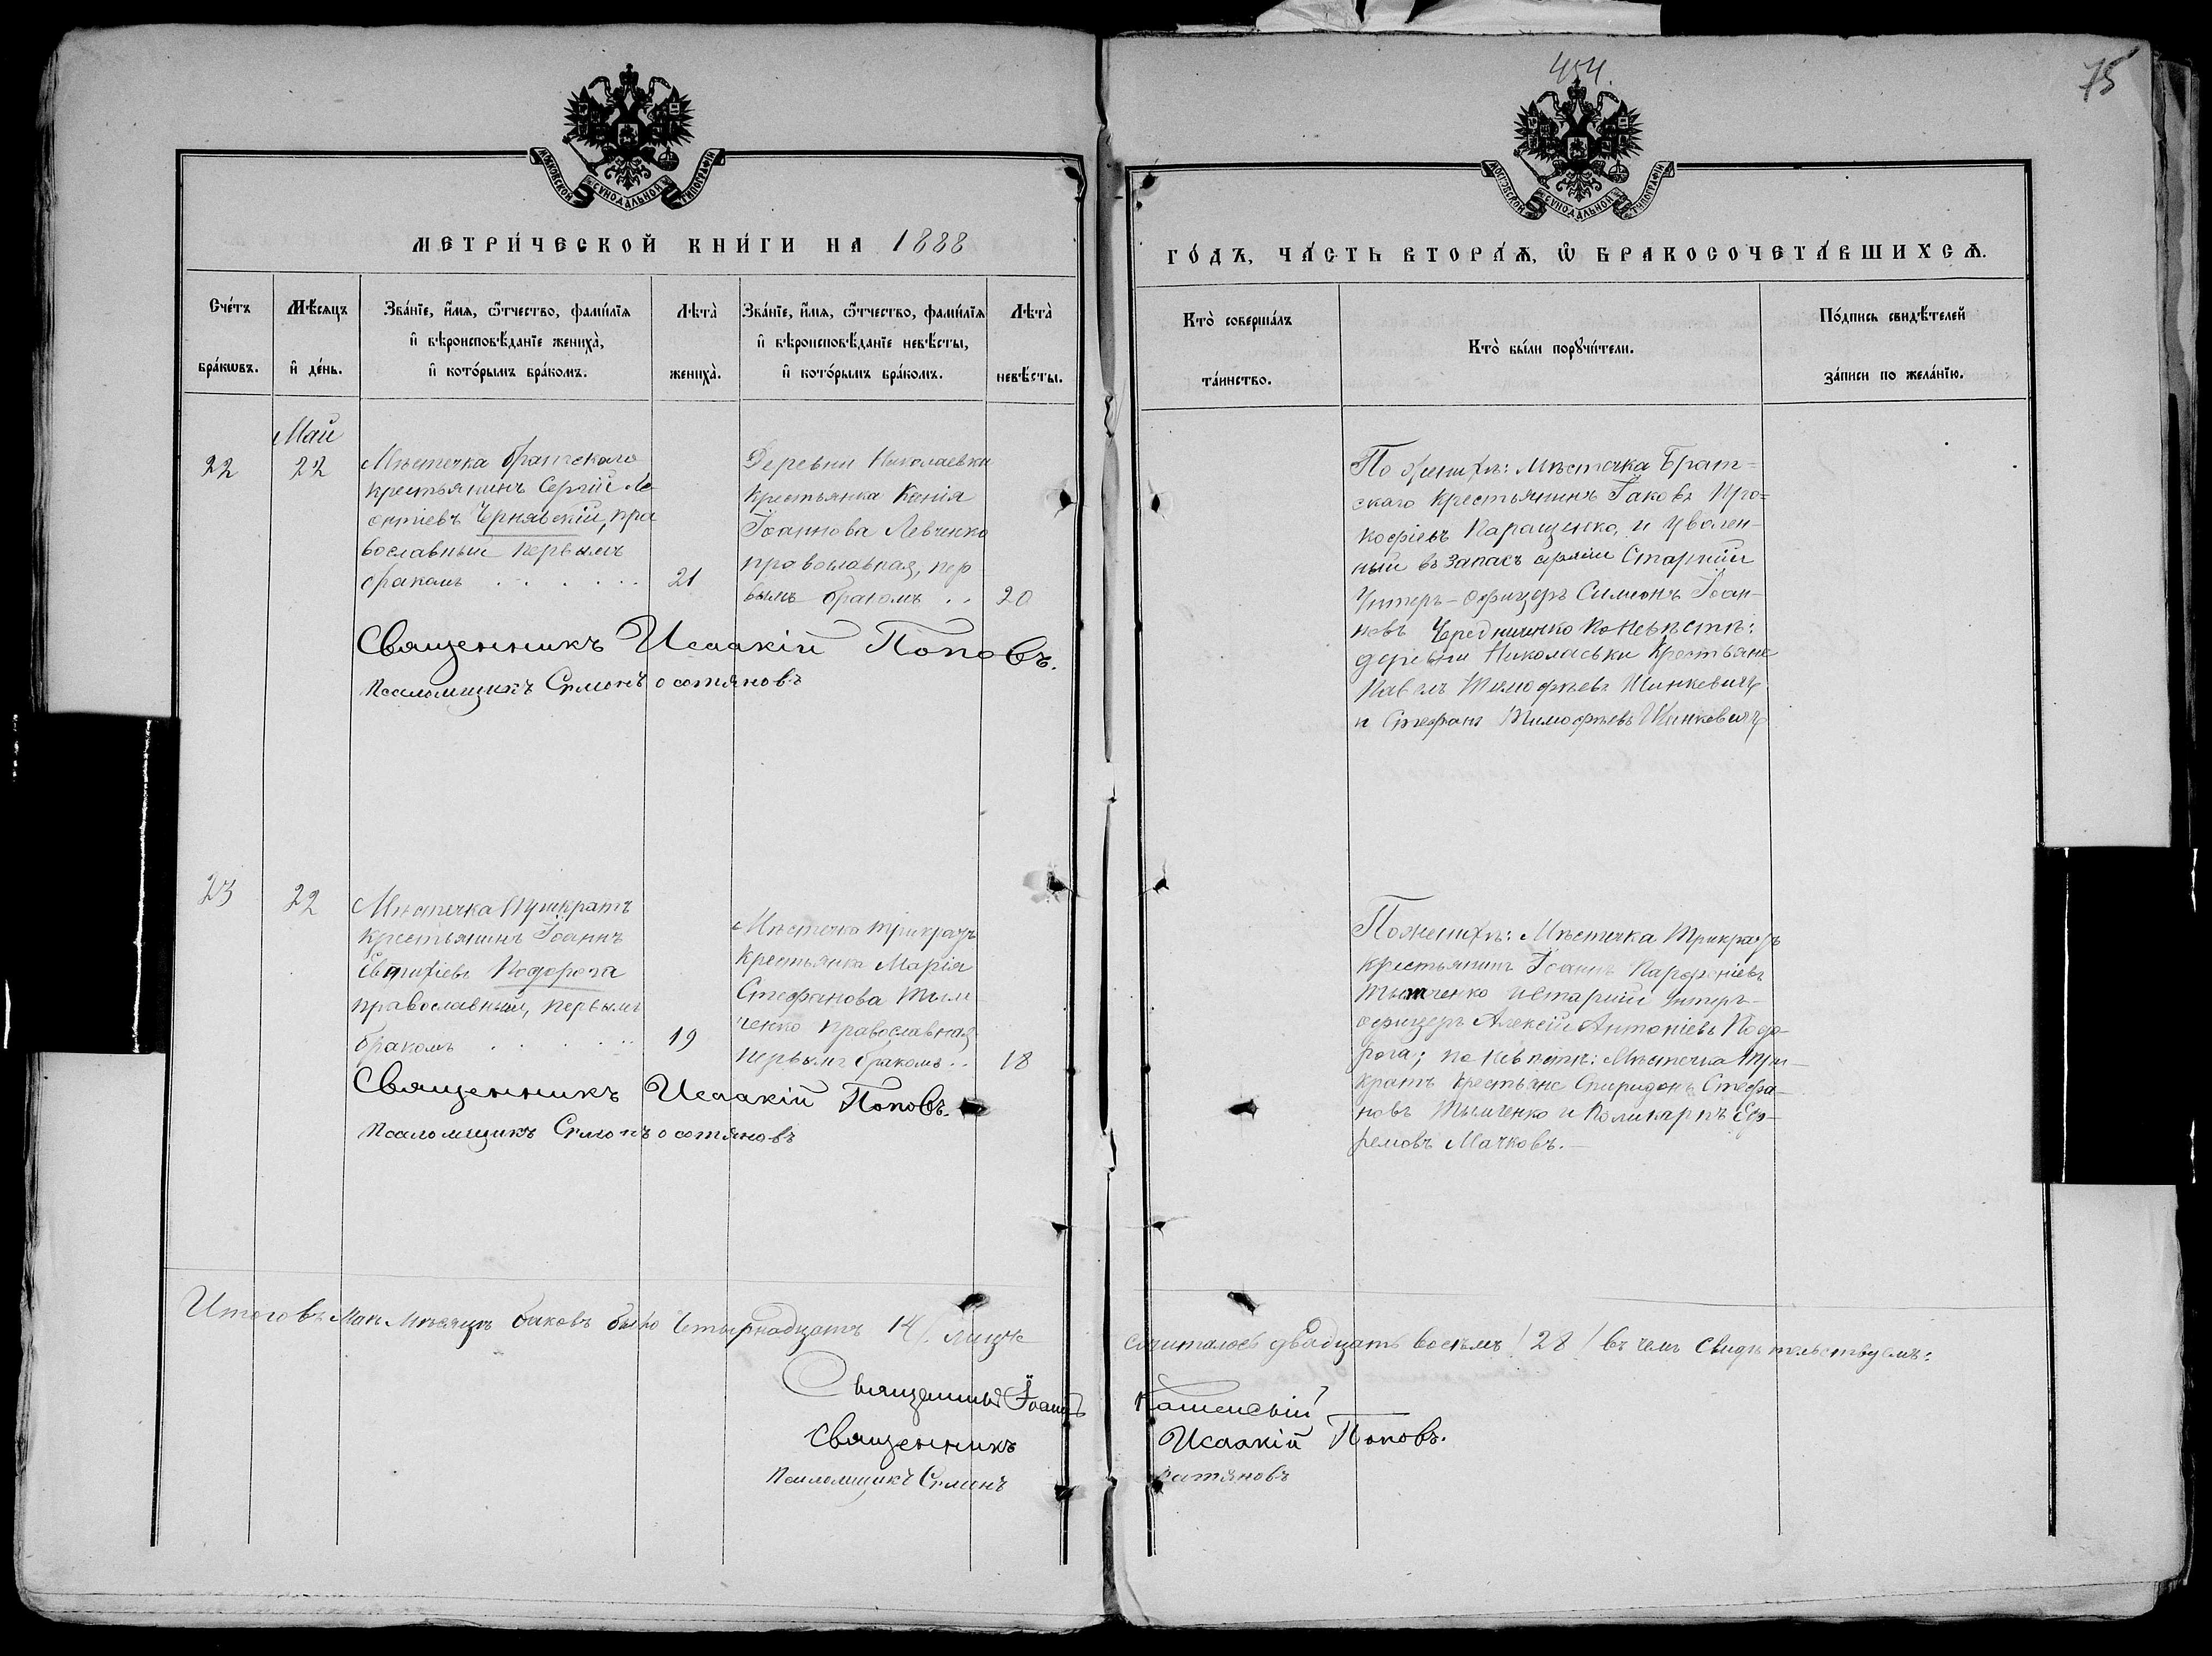 454.
75
МОСКОВСКОЙ СУНОДАЛЬНОЙ ТИПОГРАФІИ
МОСКОВСКОЙ СУНОДАЛЬНОЙ ТИПОГРАФІИ
МЕТРИ́ЧЕСКОЙ КНИ́ГИ НА 1888
ГО́ДЪ, ЧА́СТЬ ВТОРА́Ѧ, Ѡ҆ БРАКОСОЧЕТА́ВШИХСѦ.
Сче́тъ
бра́кѡвъ.
Мѣ́сяцъ
и҆ де́нь.
Зва́нїе, и҆́мя, ѻ҆́тчество, фами́лїя
и҆ вѣроисповѣ́данїе жениха̀,
и҆ кото́рымъ бра́комъ.
Лѣта̀
жениха̀.
Зва́нїе, и҆́мя, ѻ҆́тчество, фами́лїя
и҆ вѣроисповѣ́данїе невѣ́сты,
и҆ кото́рымъ бра́комъ.
Лѣта̀
невѣ́сты.
Кто̀ соверша́лъ
та́инство.
Кто̀ бы́ли порꙋчи́тели.
По́дпись свидѣ́телей
за́писи по жела́нїю.
Май
22
22
Мѣстечка Братскаго
крестьянинъ Сергій Ле
онтіевъ Чернявскій, пра
вославный первымъ
бракомъ . . . . . .
21
Деревни Николаевки
крестьянка Ксенія
Іоаннова Левченко
православная, пер
вымъ бракомъ . .
20
Священникъ Исаакій Поповъ.
Псаломщикъ Симонъ Осотяновъ
По женихѣ: Мѣстечка Брат-
скаго крестьянинъ Іаковъ Про-
кофіевъ Паращенко, и уволен-
ный въ запасъ арміи Старшій
Унтеръ-офицеръ Симеонъ Іоан-
новъ Чередниченко по невѣстѣ:
деревни Николаевки крестьяне
Павелъ Тимофѣевъ Шинкевичъ
и Стефанъ Тимофѣевъ Шинкевичъ
23
22
Мѣстечка Трикратъ
крестьянинъ Іоаннъ
Евтихіевъ Подорога
православный, первымъ
бракомъ . . . . . .
19
Мѣстечка Трикратъ
крестьянка Марія
Стефанова Тым
ченко православная
первымъ бракомъ . .
18
Священникъ Исаакій Поповъ.
Псаломщикъ Симонъ Осотяновъ
По женихѣ: Мѣстечка Трикратъ
крестьянинъ Іоаннъ Парфеніевъ
Тымченко и Старшій Унтеръ-
офицеръ Алексій Антоніевъ Подо-
рога; по невѣстѣ: Мѣстечка Три-
кратъ крестьяне Спиридонъ Стефа-
новъ Тымченко и Поликарпъ Еф-
ремовъ Мачковъ.
Итого въ Маѣ Мѣсяцѣ браковъ было четырнадцать 14/. лицъ
считалось двадцать восемь /28/ въ чемъ свидѣтельствуемъ:
Священникъ Іоаннъ
Священникъ Исаакій Поповъ.
Псаломщикъ Симонъ Осотяновъ